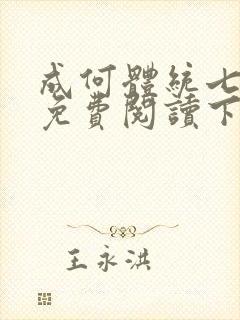 成何體統七
免費閱讀下
王永洪